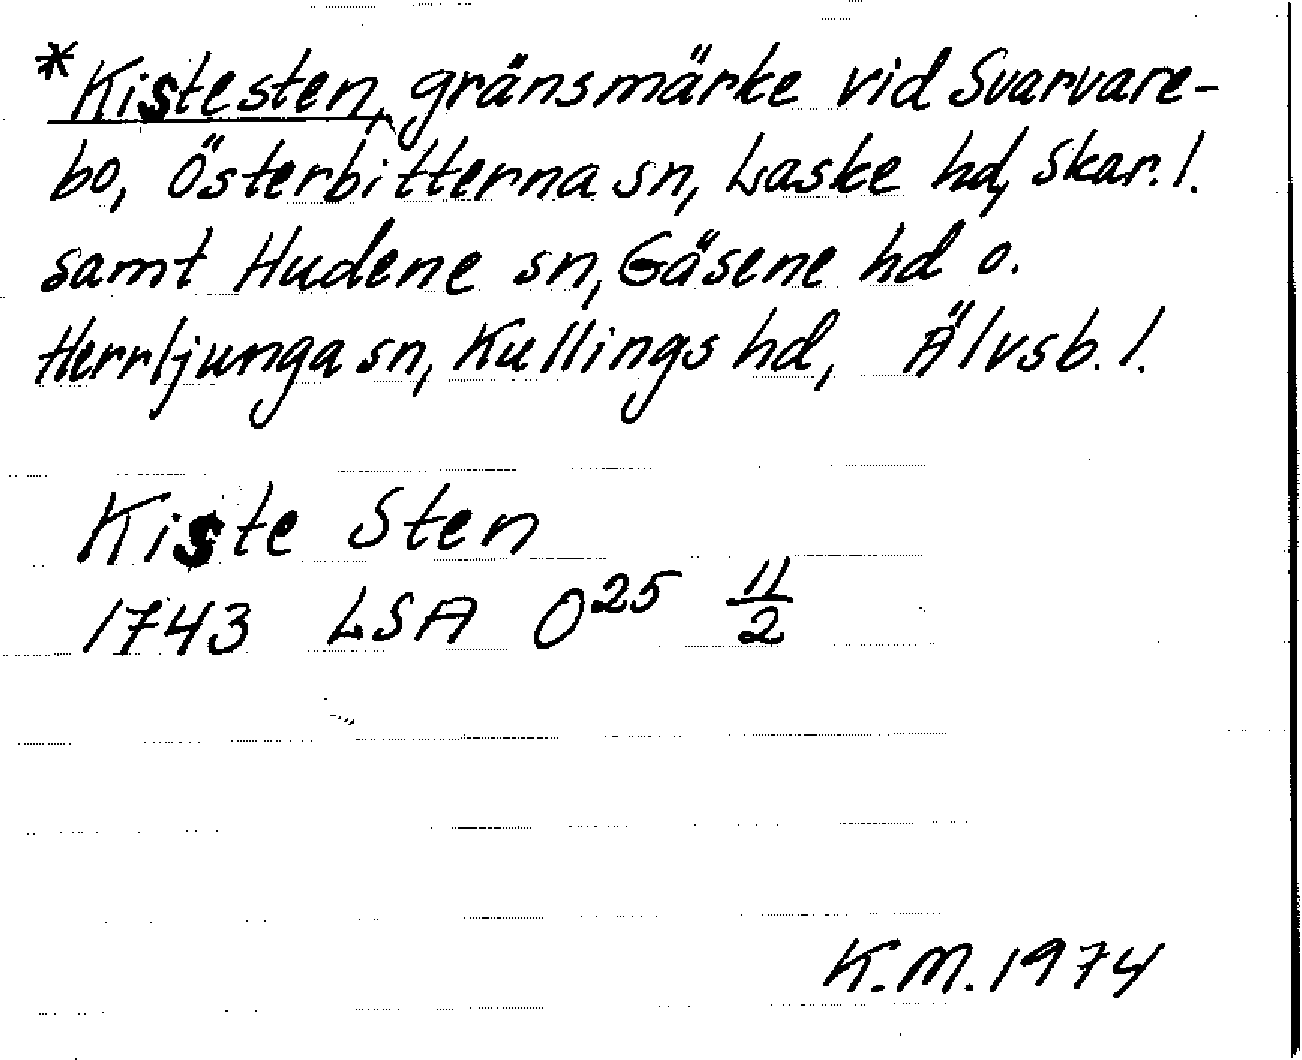 *Kistesten, gränsmärke vid Svarvare-
bo, Österbitterna sn, Laske hd, Skar. l.
samt Hudene sn, Gäsene hd o.
Herrljunga sn, Kullings hd, Älvsb. l.
Kiste Sten
1743 LSA O²⁵ 11/2
K.M. 1974